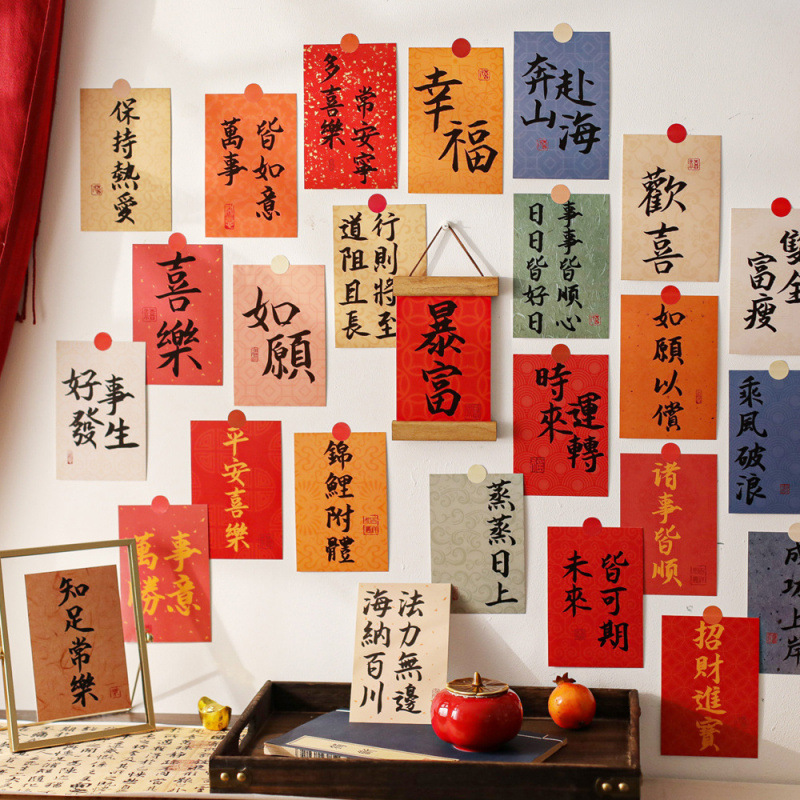 保持熱愛
萬事
皆如意
多喜樂
常安寧
幸福
奔山
赴海
歡喜
喜樂
如願
道阻且長
行則將至
暴富
日日皆好日
事事皆順心
富瘦
雙全
好事
發生
平安喜樂
錦鯉附體
時來
運轉
如願以償
乘風破浪
萬事
勝意
蒸蒸日上
諸事皆順
未來
皆可期
成功上岸
知足常樂
海納百川
法力無邊
招財進寶